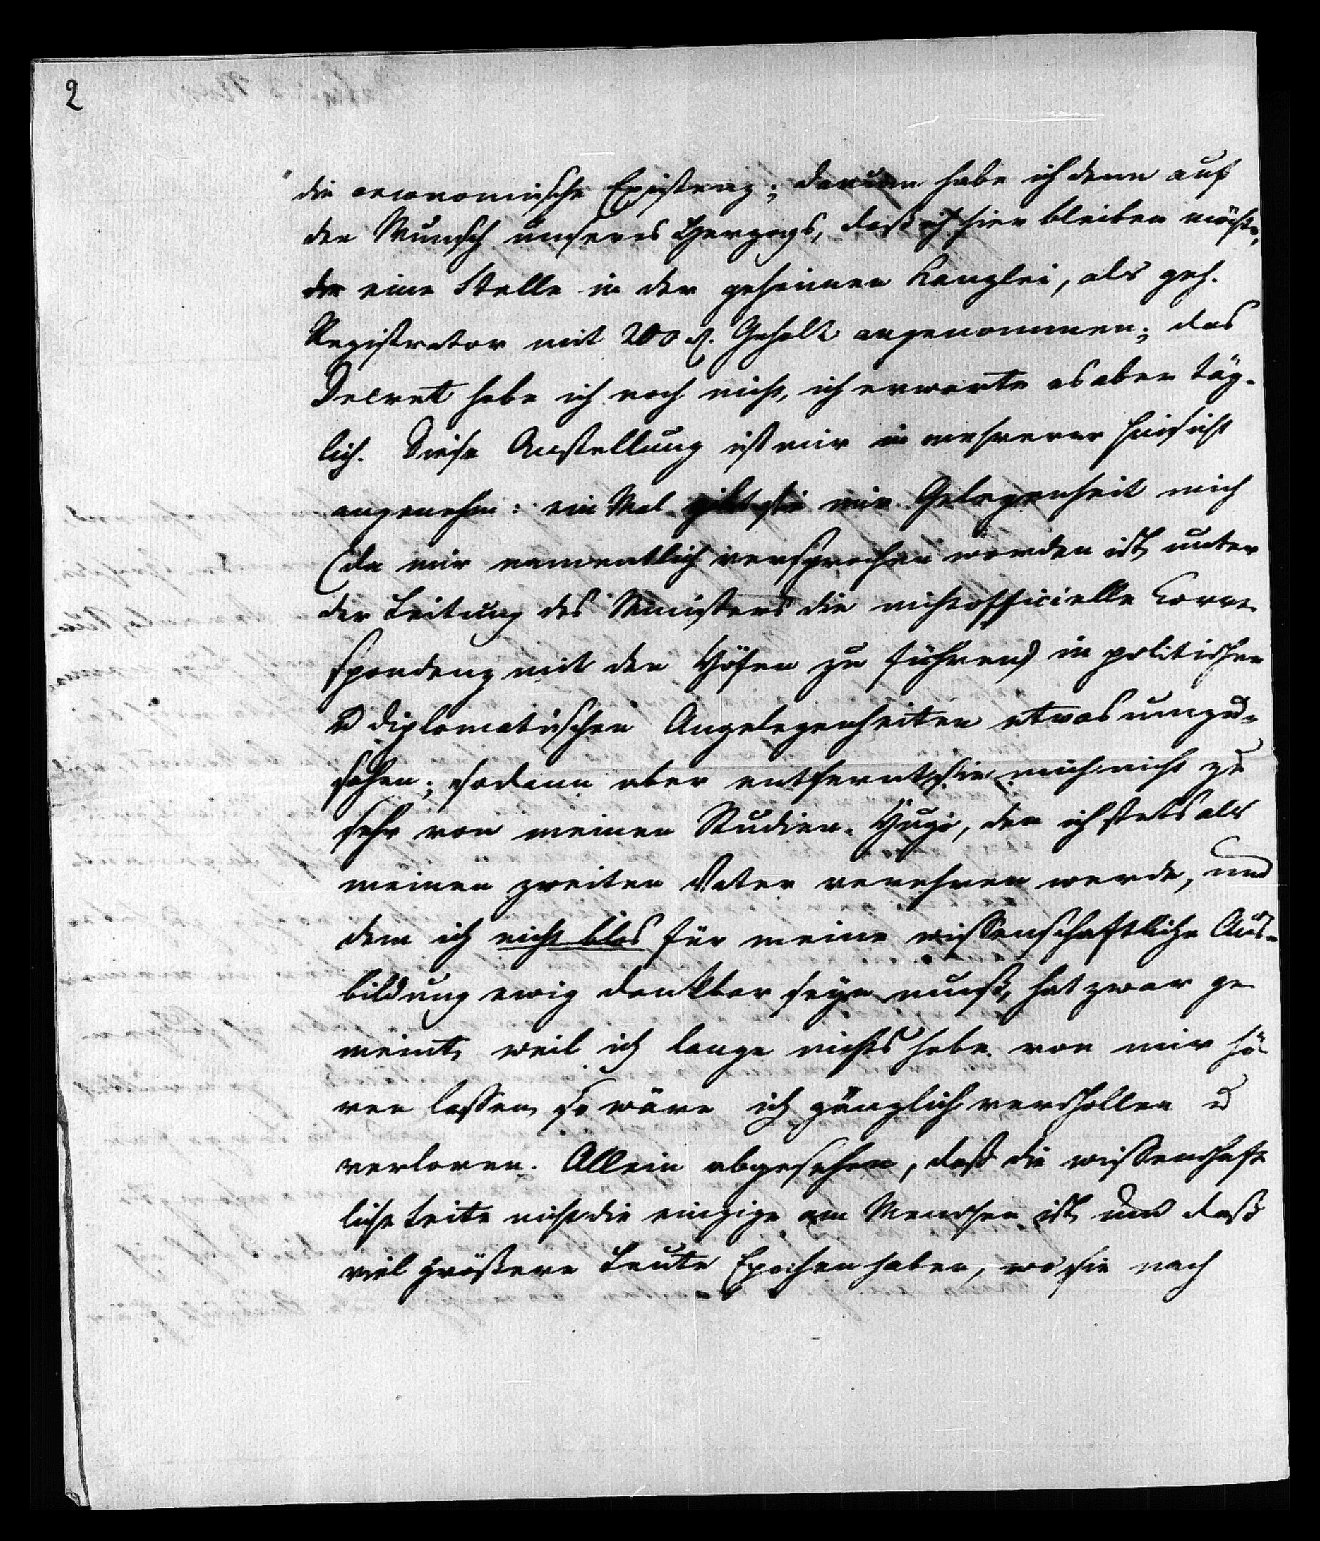 2
die oeconomische Existenz; darum habe ich denn auf
den Wunsch unseres Herzogs, daß ich hier bleiben möchte,
die eine Stelle in der geheimen Kanzlei, als geh.
Registrator mit 200 Gehalt angenommen; das
Decret habe ich noch nicht, ich erwarte es aber täg-
lich. Diese Anstellung ist mir in mehrerer Hinsicht
angenehm: ein Mal gibt sie mir Gelegenheit mich
(da mir namentlich versprochen worden ist, unter
der Leitung des Ministers die nichtofficielle Corre-
spondenz mit den Höfen zu führen) in politischen
u diplomatischen Angelegenheiten etwas umzu-
sehen; sodann aber entfernt sie mich nicht zu
sehr von meinen Studien. Hugo, den ich stets als
meinen zweiten Vater verehren werde, und
dem ich nicht blos für meine wissenschaftliche Aus-
bildung ewig dankbar seyn muß, hat zwar ge-
meint, weil ich lange nichts habe von mir hö-
ren lassen, so wäre ich gänzlich verschollen u
verloren. Allein abgesehen, daß die wissenschaft-
liche Seite nicht die einzige am Menschen ist, und daß
viel größere Leute Epochen haben, wo sie nach